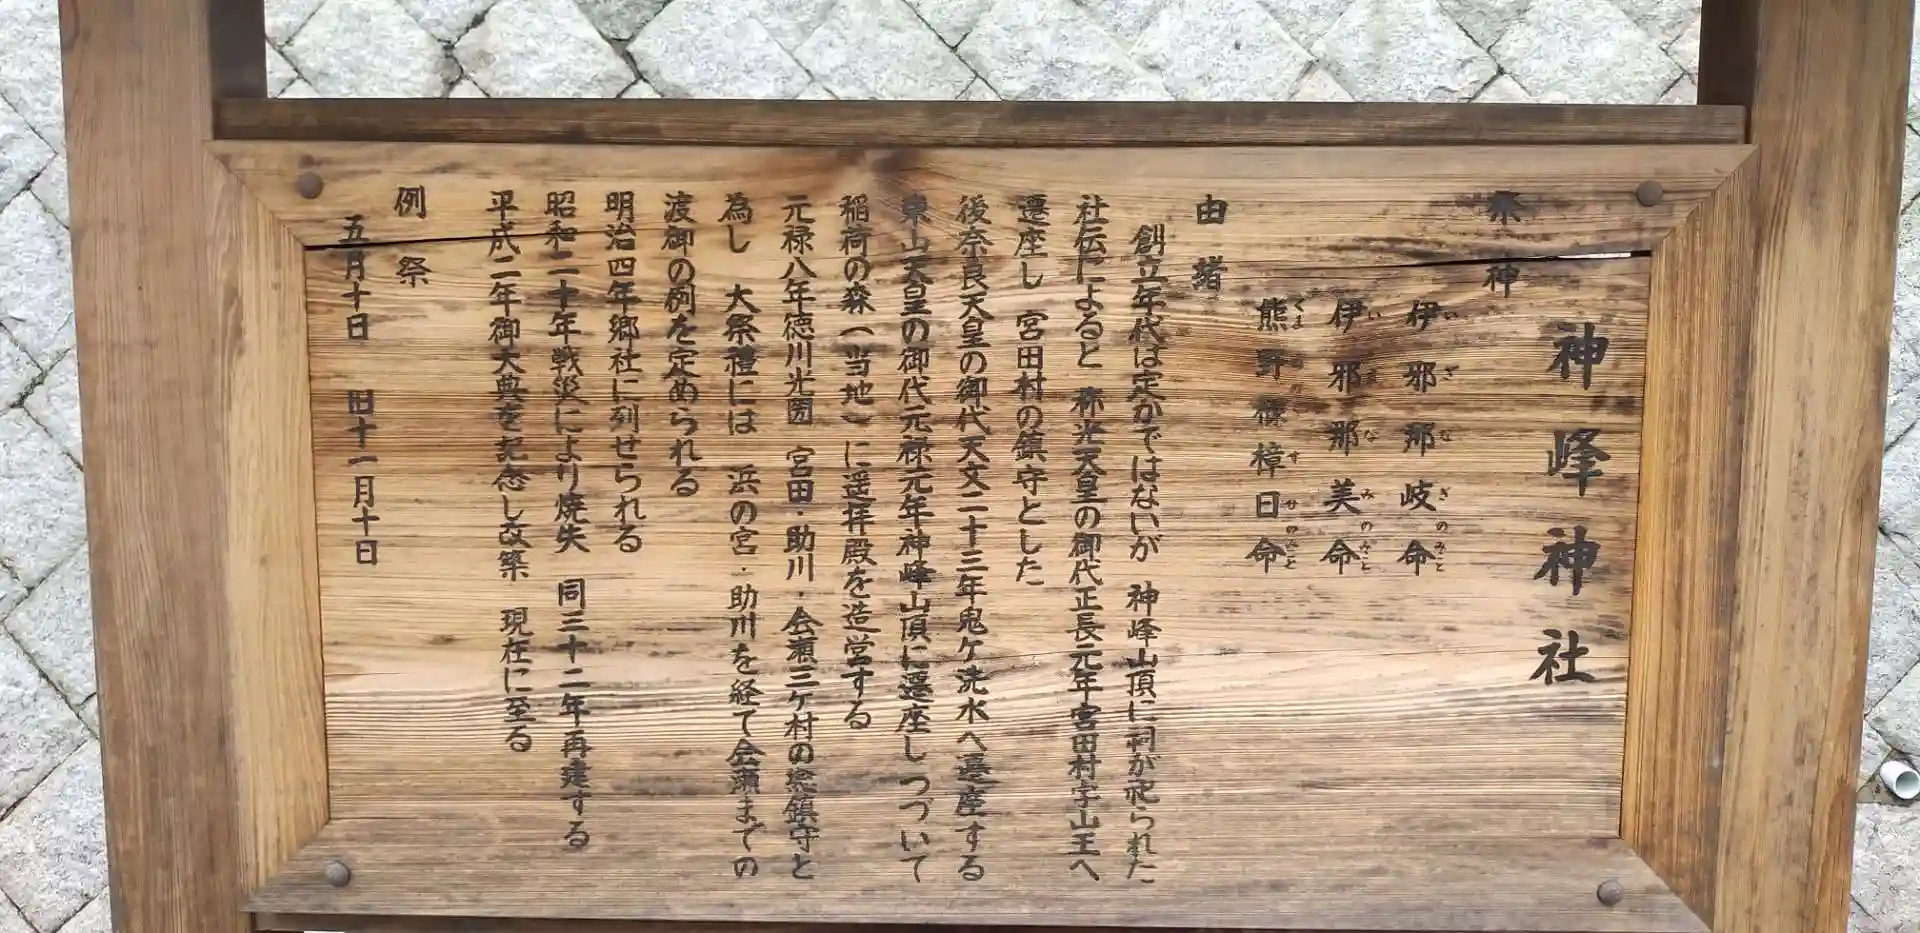 神峰神社
祭神
伊邪那岐命
いざなぎのみこと
伊邪那美命
いざなみのみこと
熊野櫲樟日命
くまのくすひのみこと
由緒
創立年代は定かではないが 神峰山頂に祠が祀られた
社伝によると 称光天皇の御代正長元年宮田村字山王へ
遷座し 宮田村の鎮守とした
後奈良天皇の御代天文二十三年鬼ケ洗水へ遷座する
東山天皇の御代元禄元年神峰山頂に遷座しつづいて
稲荷の森(当地)に遥拝殿を造営する
元禄八年徳川光圀 宮田・助川・会瀬三ケ村の総鎮守と
為し 大祭禮には 浜の宮・助川を経て会瀬までの
渡御の例を定められる
明治四年郷社に列せられる
昭和二十年戦災により焼失 同三十二年再建する
平成二年御大典を記念し改築 現在に至る
例祭
五月十日 旧十一月十日